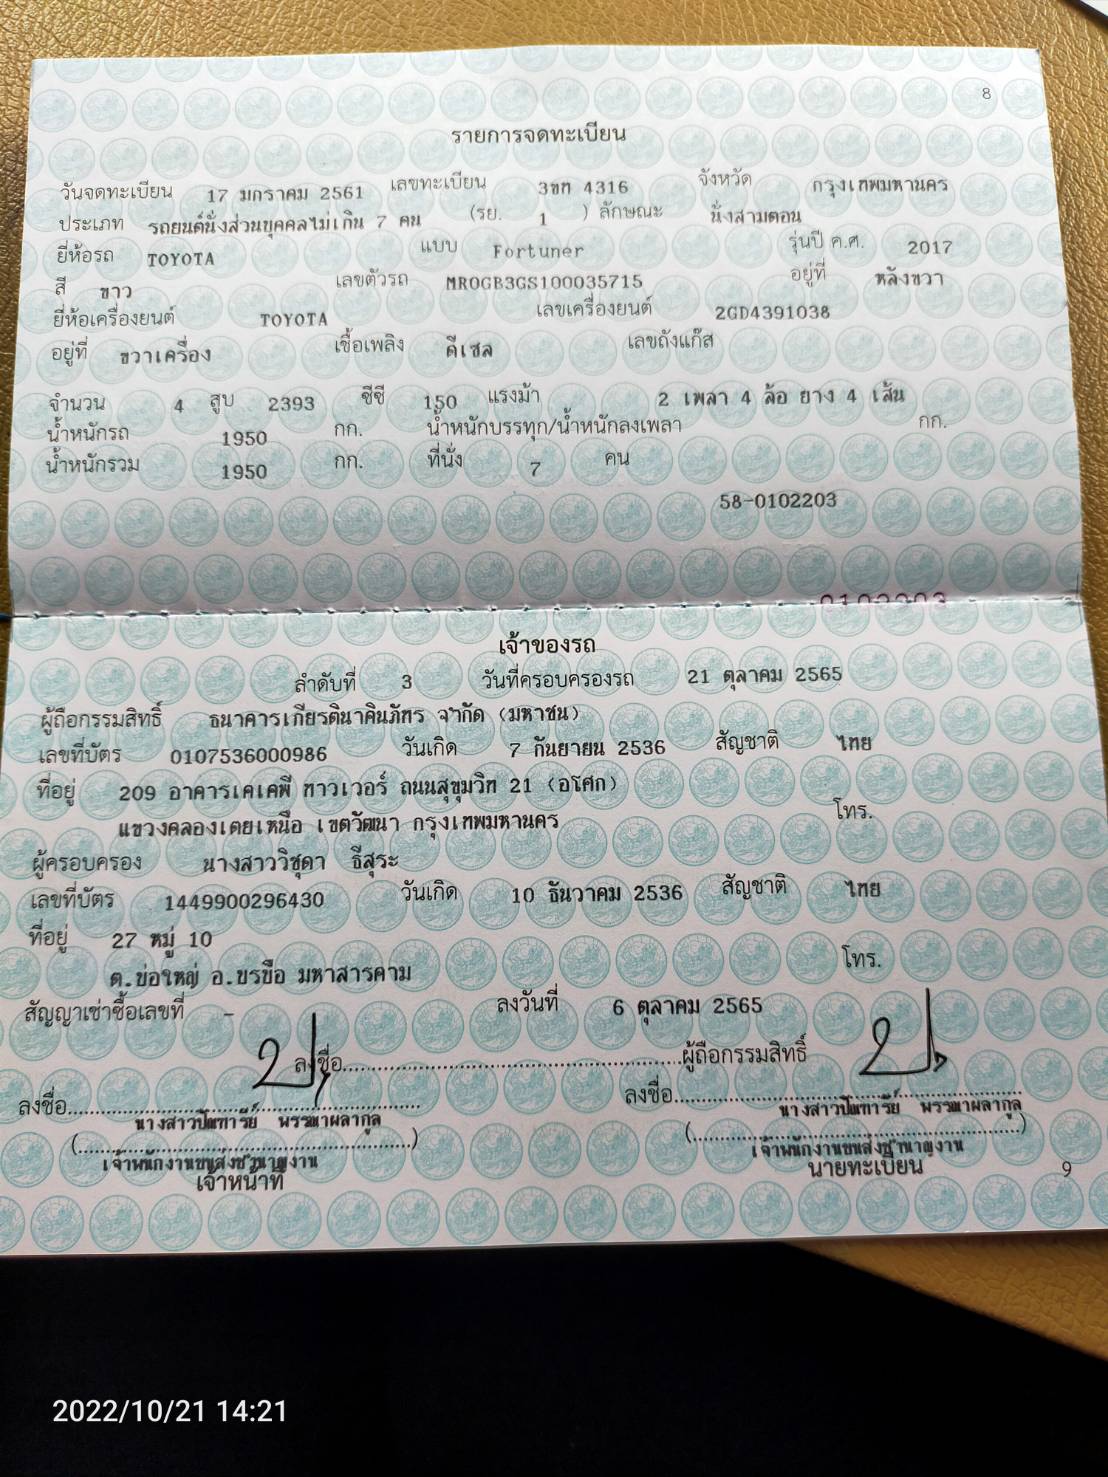 8
รายการจดทะเบียน
วันจดทะเบียน 17 มกราคม 2561 เลขทะเบียน 3ขท 4316 จังหวัด กรุงเทพมหานคร
ประเภท รถยนต์นั่งส่วนบุคคลไม่เกิน 7 คน (รย. 1 ) ลักษณะ นั่งสามตอน
ยี่ห้อรถ TOYOTA แบบ Fortuner รุ่นปี ค.ศ. 2017
สี ขาว เลขตัวรถ MR0GB3GS100035715 อยู่ที่ หลังขวา
ยี่ห้อเครื่องยนต์ TOYOTA เลขเครื่องยนต์ 2GD4391038
อยู่ที่ ขวาเครื่อง เชื้อเพลิง ดีเซล เลขถังแก๊ส
จำนวน 4 สูบ 2393 ซีซี 150 แรงม้า 2 เพลา 4 ล้อ ยาง 4 เส้น
น้ำหนักรถ 1950 กก. น้ำหนักบรรทุก/น้ำหนักลงเพลา กก.
น้ำหนักรวม 1950 กก. ที่นั่ง 7 คน
58-0102203
0102203
เจ้าของรถ
ลำดับที่ 3 วันที่ครอบครองรถ 21 ตุลาคม 2565
ผู้ถือกรรมสิทธิ์ ธนาคารเกียรตินาคินภัทร จำกัด (มหาชน)
เลขที่บัตร 0107536000986 วันเกิด 7 กันยายน 2536 สัญชาติ ไทย
ที่อยู่ 209 อาคารเคเคพี ทาวเวอร์ ถนนสุขุมวิท 21 (อโศก)
แขวงคลองเตยเหนือ เขตวัฒนา กรุงเทพมหานคร โทร.
ผู้ครอบครอง นางสาววิชุดา ธีสุระ
เลขที่บัตร 1449900296430 วันเกิด 10 ธันวาคม 2536 สัญชาติ ไทย
ที่อยู่ 27 หมู่ 10
ต.บ่อใหญ่ อ.บรบือ มหาสารคาม โทร.
สัญญาเช่าซื้อเลขที่ - ลงวันที่ 6 ตุลาคม 2565
ลงชื่อ............ผู้ถือกรรมสิทธิ์
ลงชื่อ............ ลงชื่อ............
นางสาวปัณฑารีย์ พรรณาผลากูล นางสาวปัณฑารีย์ พรรณาผลากูล
(............) (............)
เจ้าพนักงานขนส่งชำนาญงาน เจ้าพนักงานขนส่งชำนาญงาน
เจ้าหน้าที่ นายทะเบียน
9
2022/10/21 14:21